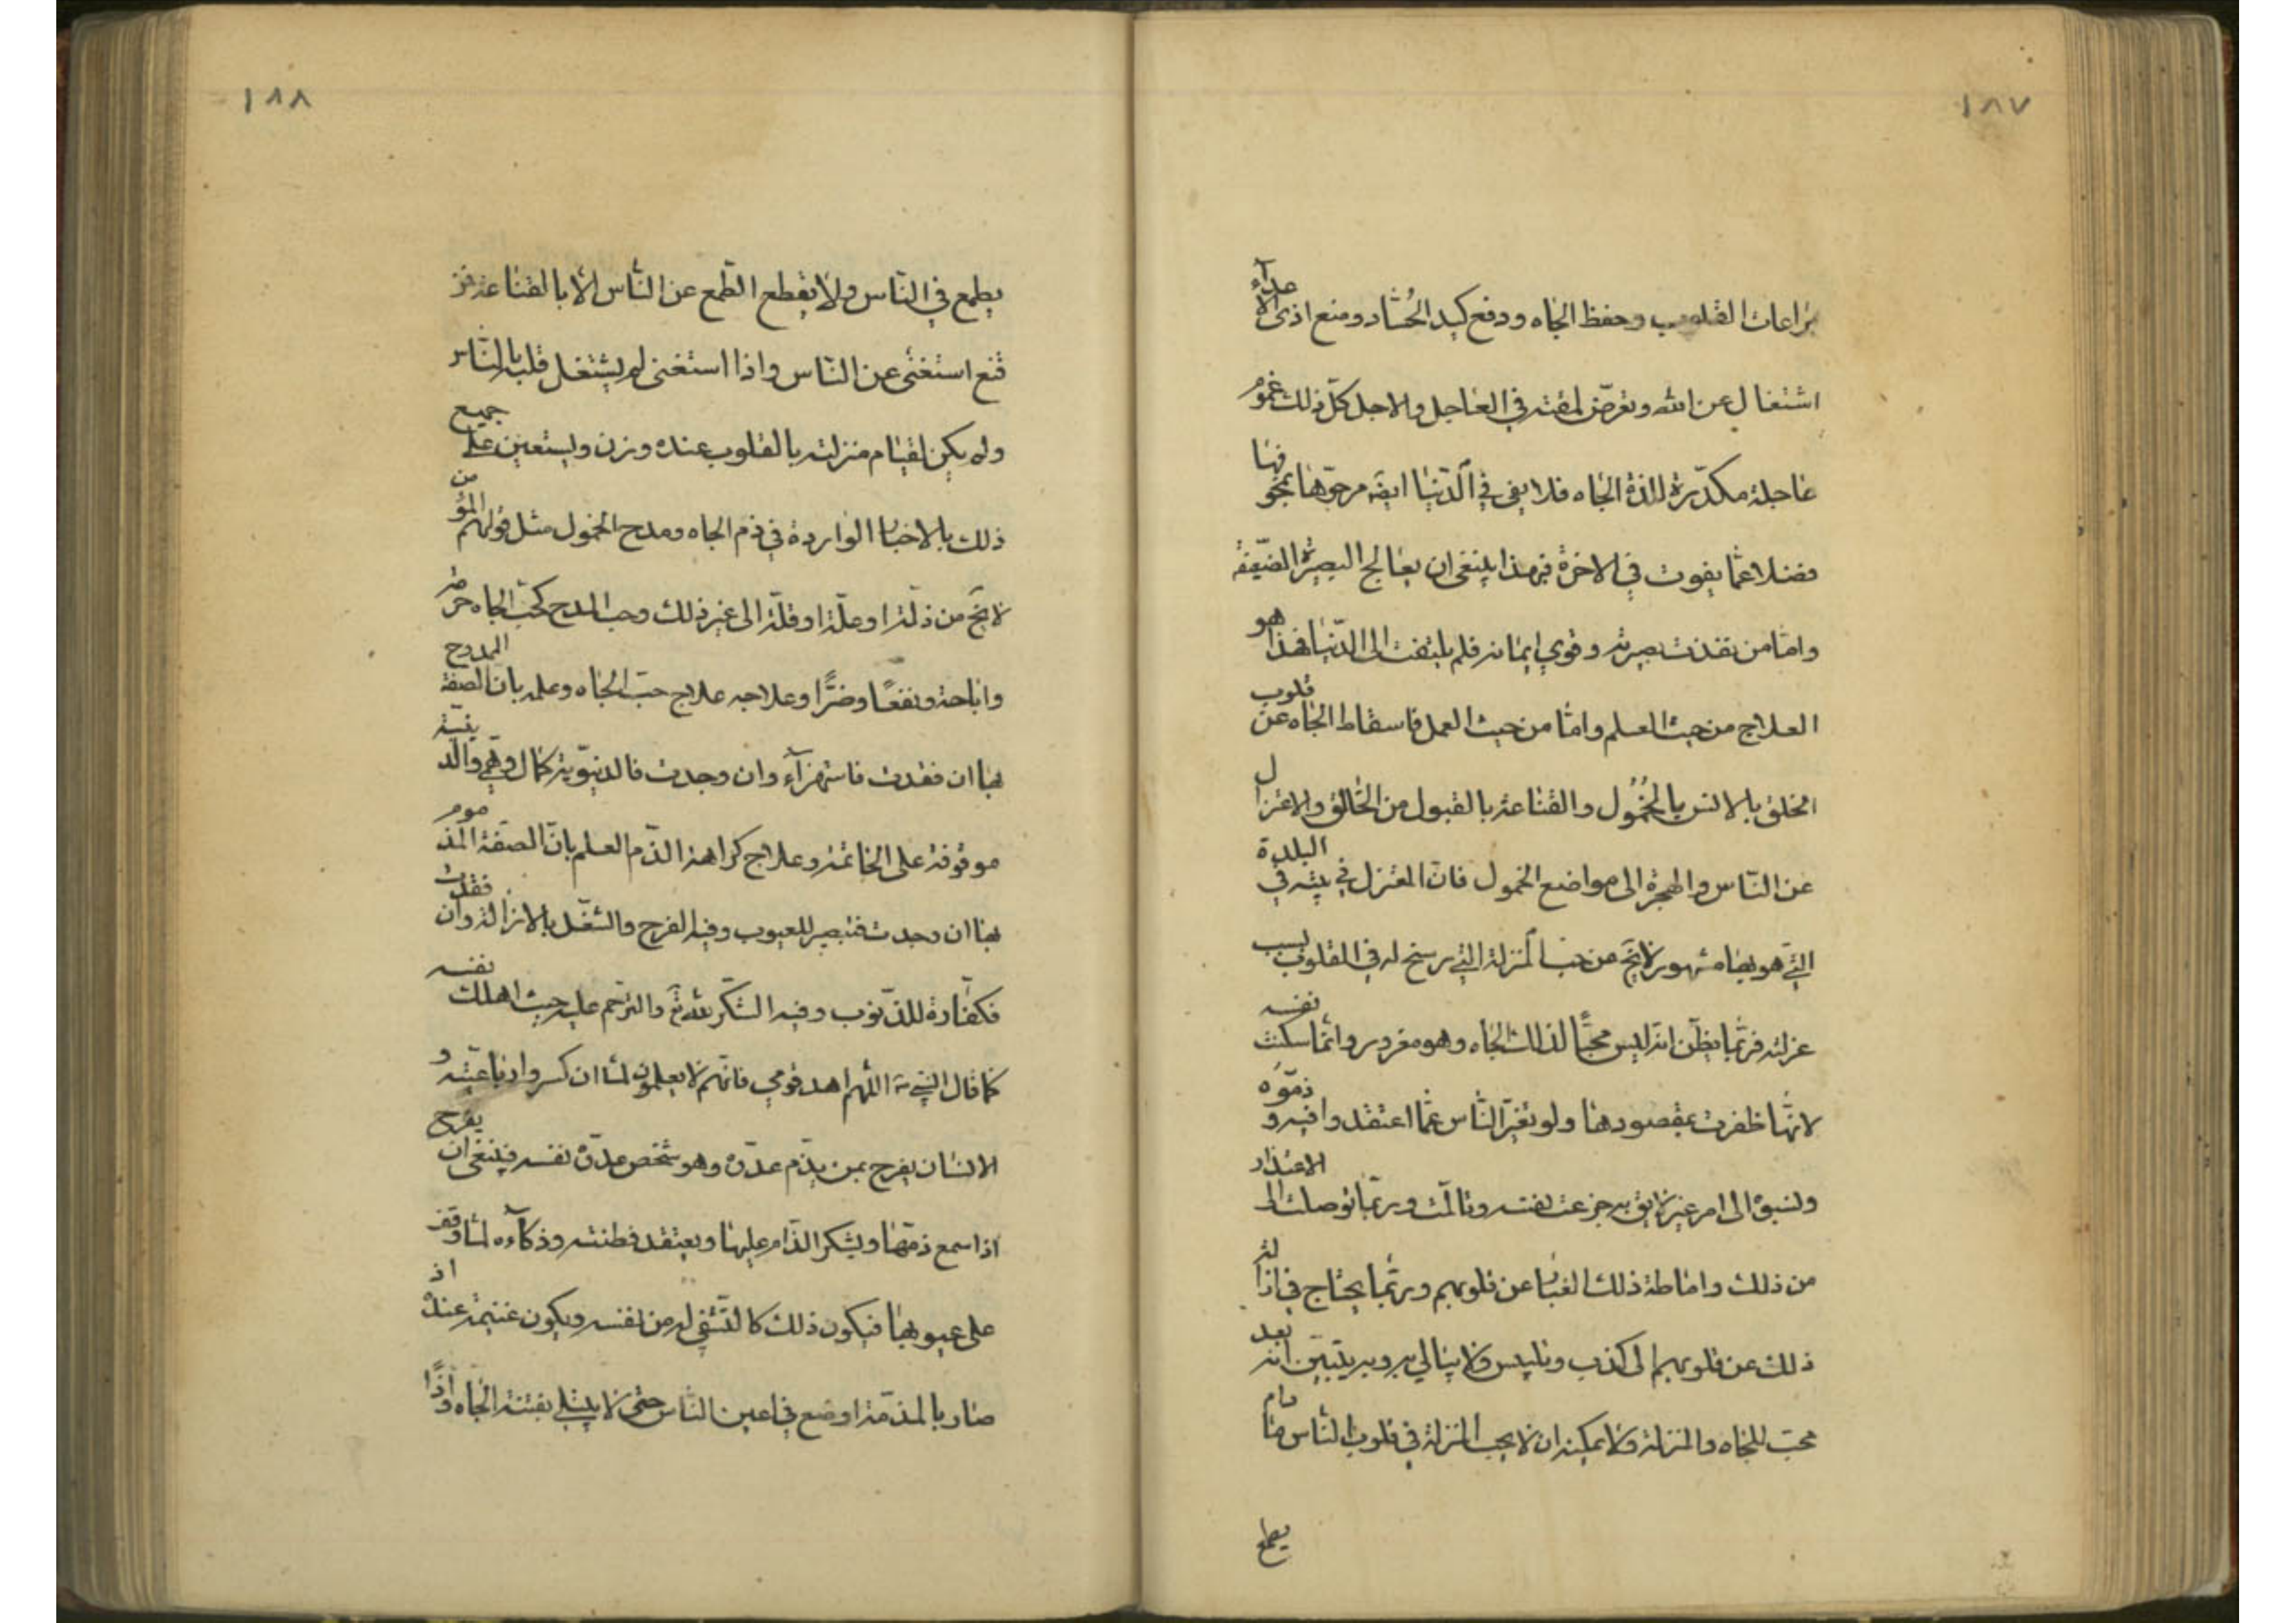 ١٨٧
بمراعات القلوب وحفظ الجاه ودفع كيد الحُسّاد ومنع اذى الاعدآء
اشتغال عن الله وتعرّض لمقته في العاجل والاجل كلّ ذلك غموم
عاجلة مكدّرة للذة الجاه فلا يفي في الدّنيا ايضا مرجوّها بمخوفها
فضلا عمّا يفوت في الاخرة فبهذا ينبغي ان يعالج البصيرة الضّعيفة
وامّا من نفذت بصيرته وقوي ايمانه فلم يلتفت الى الدّنيا فهذا هو
العلاج من حيث العلم وامّا من حيث العمل فاسقاط الجاه عن قلوب
الخلق بالانس بالخُمُول والقناعة بالقبول من الخالق والاعتزال
عن النّاس والهجرة الى مواضع الخمول فانّ المعتزل في بيته في البلدة
الّتي هو بها مشهور لا يخ من حب المنزلة الّتي ترسخ له في القلوب بسبب
عزلته فربّما يظنّ انّه ليس محبّا لذلك الجاه وهو مغرور وانّما سكنت نفسه
لانّها ظفرت بمقصودها ولو تغيّر النّاس عمّا اعتقدوا فيه وذمّوه
ونسبوه الى امر غير لايق به جزعت نفسه وتألّمت وربّما توصلت الى الاعتذار
من ذلك واماطة ذلك الغبار عن قلوبهم وربّما يحتاج في ازالة
ذلك عن قلوبهم الى كذب وتلبيس ولا يبالي به وبه يتبيّن انّه بعد
محبّ للجاه والمنزلة ولا يمكنه ان لا يحب المنزلة في قلوب النّاس ما دام
يطمع
١٨٨
يطمع في النّاس ولا يقطع الطّمع عن النّاس الّا بالقناعة فمن
قنع استغنى عن النّاس واذا استغنى لم يشتغل قلبه بالنّاس
ولم يكن لقيام منزلته بالقلوب عنده وزن ويستعين على جميع
ذلك بالاخبار الواردة في ذم الجاه ومدح الخمول مثل قولهم المؤمن
لا يخ من ذلّة او علّة او قلّة الى غير ذلك وحب المدح كحبّ الجاه حرمة
واباحة ونفعًا وضرًّا وعلاجه علاج حبّ الجاه وعلمه بان الصفة الممدوح
بها ان فقدت فاستهزآء وان وجدت فالدنيويّة كمال وهمي والدينيّة
موقوفة على الخاتمة وعلاج كراهة الذّم العلم بانّ الصفة المذموم
بها ان وجدت فتبصير للعيوب وفيه الفرح والشّغل بالازالة وان فقدت
فكفّارة للذّنوب وفيه الشّكر لله تع والترحّم عليه حيث اهلك نفسه
كما قال النّبي ص اللّهم اهد قومي فانّهم لا يعلمون لمّا ان كسروا رباعيته و
الانسان يفرح بمن يذّم عدوّه وهو شخص عدوّ نفسه فينبغي ان يفرح
اذا سمع ذمّها ويشكر الذّام عليها ويعتقد فطنته وذكآءه لمّا وقف
على عيوبها فيكون ذلك كالتّشفي له من نفسه ويكون غنيمة عنده اذ
صار بالمذمّة اوضع في اعين النّاس حتّى لا يبتلي بفتنة الجاه واذا